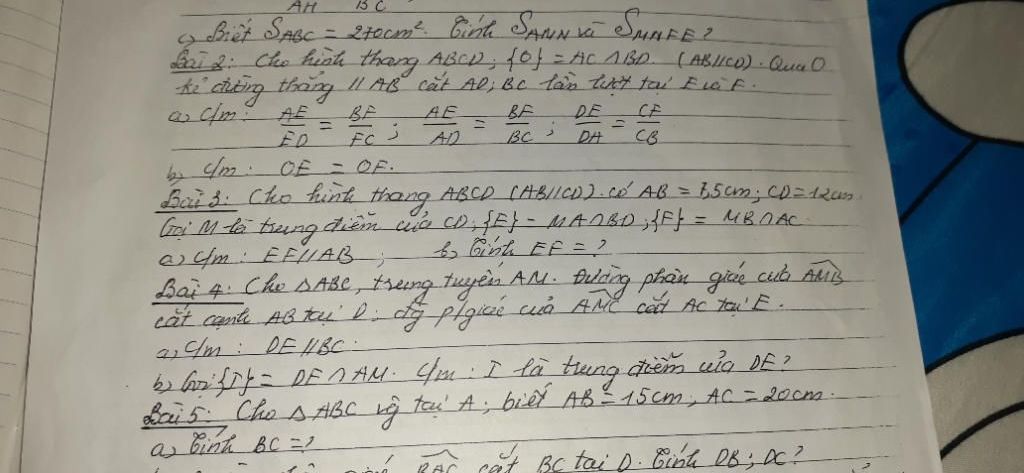 AH BC
c, Biết SABC = 270cm². Tính SAMN và SMNFE?
Bài 2: Cho hình thang ABCD; {O} = AC ∩ BD (AB//CD). Qua O
kẻ đường thẳng // AB cắt AD; BC lần lượt tại E và F.
a, C/m: AE/ED = BF/FC; AE/AD = BF/BC; DE/DA = CF/CB
b, C/m: OE = OF.
Bài 3: Cho hình thang ABCD (AB//CD) có AB = 7,5cm; CD = 12cm
Gọi M là trung điểm của CD; {E} = MA ∩ BD; {F} = MB ∩ AC
a, C/m: EF//AB; b, Tính EF = ?
Bài 4: Cho ΔABC, trung tuyến AM. Đường phân giác của AMB
cắt cạnh AB tại D; đg p/giác của AMC cắt AC tại E.
a, C/m: DE//BC.
b, Gọi {I} = DE ∩ AM. C/m: I là trung điểm của DE?
Bài 5: Cho ΔABC vg tại A; biết AB = 15cm, AC = 20cm.
a, Tính BC = ?
BAC cắt BC tại D. Tính DB; DC?